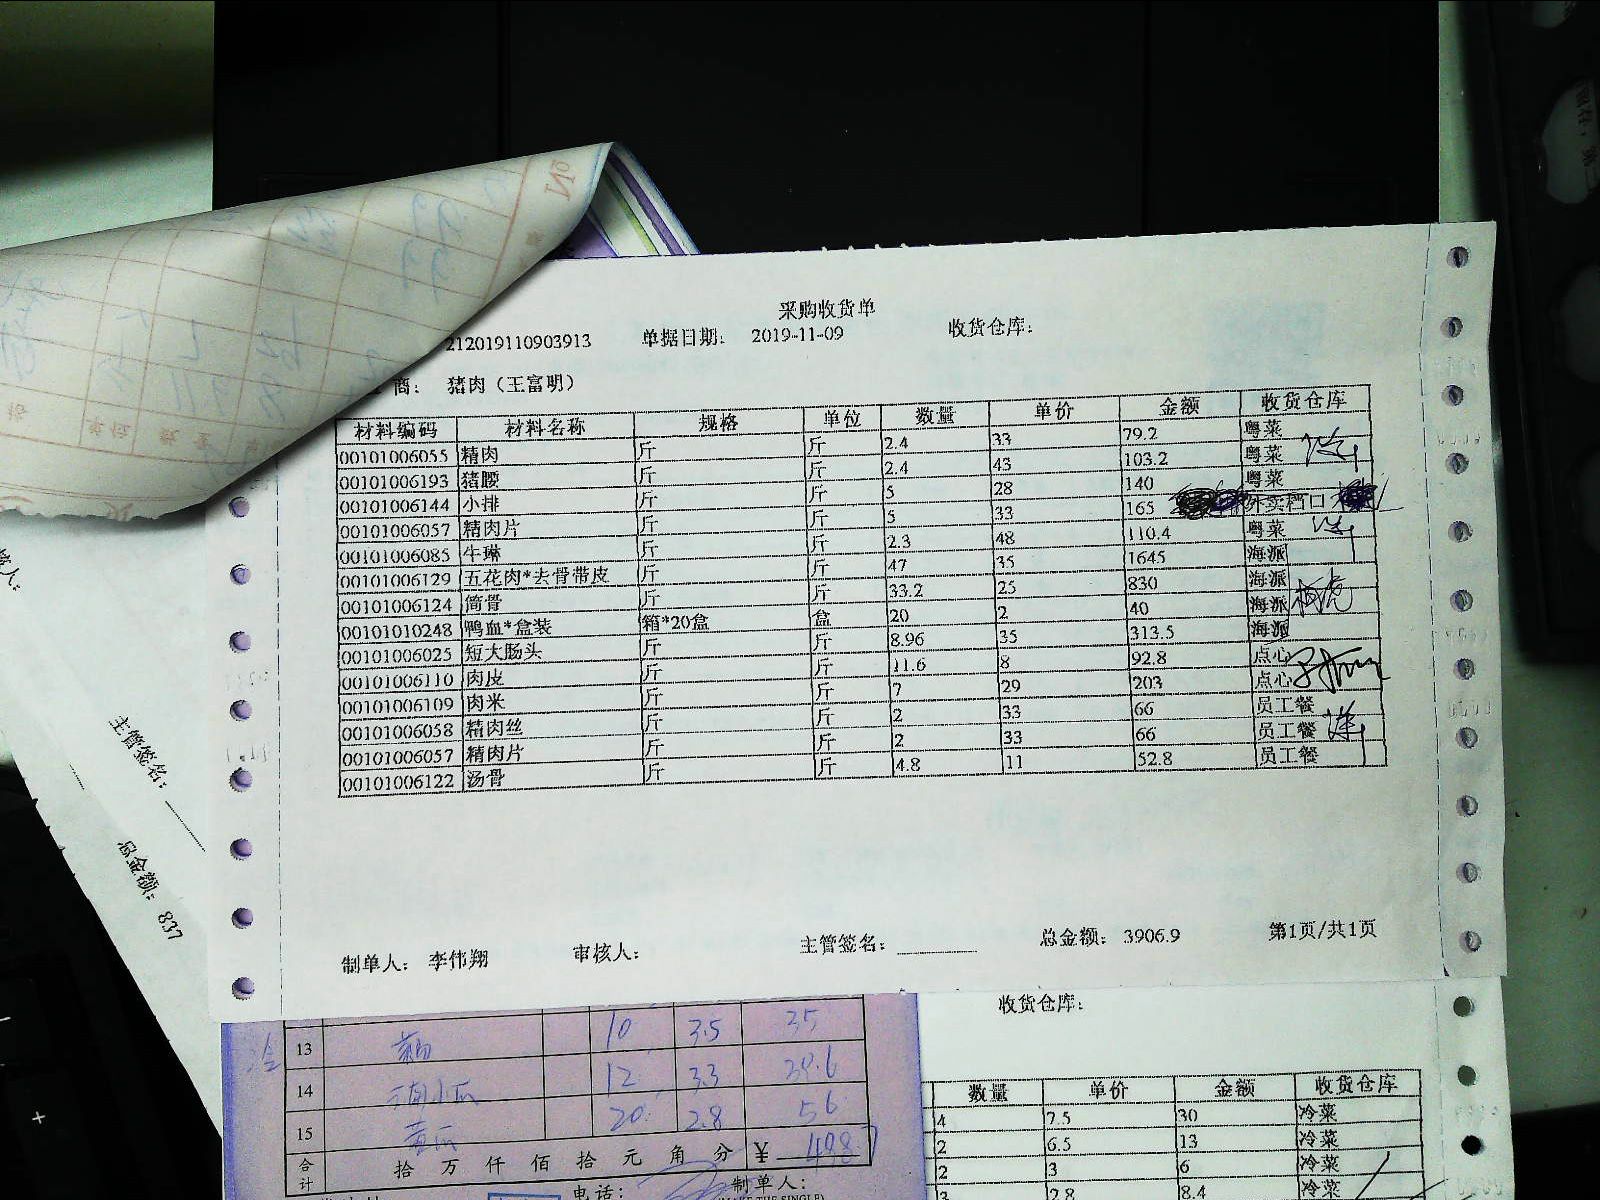 采购收货单
212019110903913 单据日期： 2019-11-09 收货仓库：
商： 猪肉（王富明）
材料编码 材料名称 规格 单位 数量 单价 金额 收货仓库
00101006055 精肉 斤 斤 2.4 33 79.2 粤菜
00101006193 猪腰 斤 斤 2.4 43 103.2 粤菜
00101006144 小排 斤 斤 5 28 140 粤菜
00101006057 精肉片 斤 斤 5 33 165 外卖档口
00101006085 牛琳 斤 斤 2.3 48 110.4 粤菜
00101006129 五花肉*去骨带皮 斤 斤 47 35 1645 海派
00101006124 筒骨 斤 斤 33.2 25 830 海派
00101010248 鸭血*盒装 箱*20盒 盒 20 2 40 海派
00101006025 短大肠头 斤 斤 8.96 35 313.5 海派
00101006110 肉皮 斤 斤 11.6 8 92.8 点心
00101006109 肉米 斤 斤 7 29 203 点心
00101006058 精肉丝 斤 斤 2 33 66 员工餐
00101006057 精肉片 斤 斤 2 33 66 员工餐
00101006122 汤骨 斤 斤 4.8 11 52.8 员工餐
制单人： 李伟翔 审核人： 主管签名： 总金额： 3906.9 第1页/共1页
主管签名：
总金额： 837
13 10 3.5 35
14 12 3.3
15 黄瓜 20 2.8 56
合计 拾 万 仟 佰 拾 元 角 分 ¥
电话： 制单人：
收货仓库：
数量 单价 金额 收货仓库
4 7.5 30 冷菜
2 6.5 13 冷菜
2 3 6 冷菜
3 2.8 8.4 冷菜